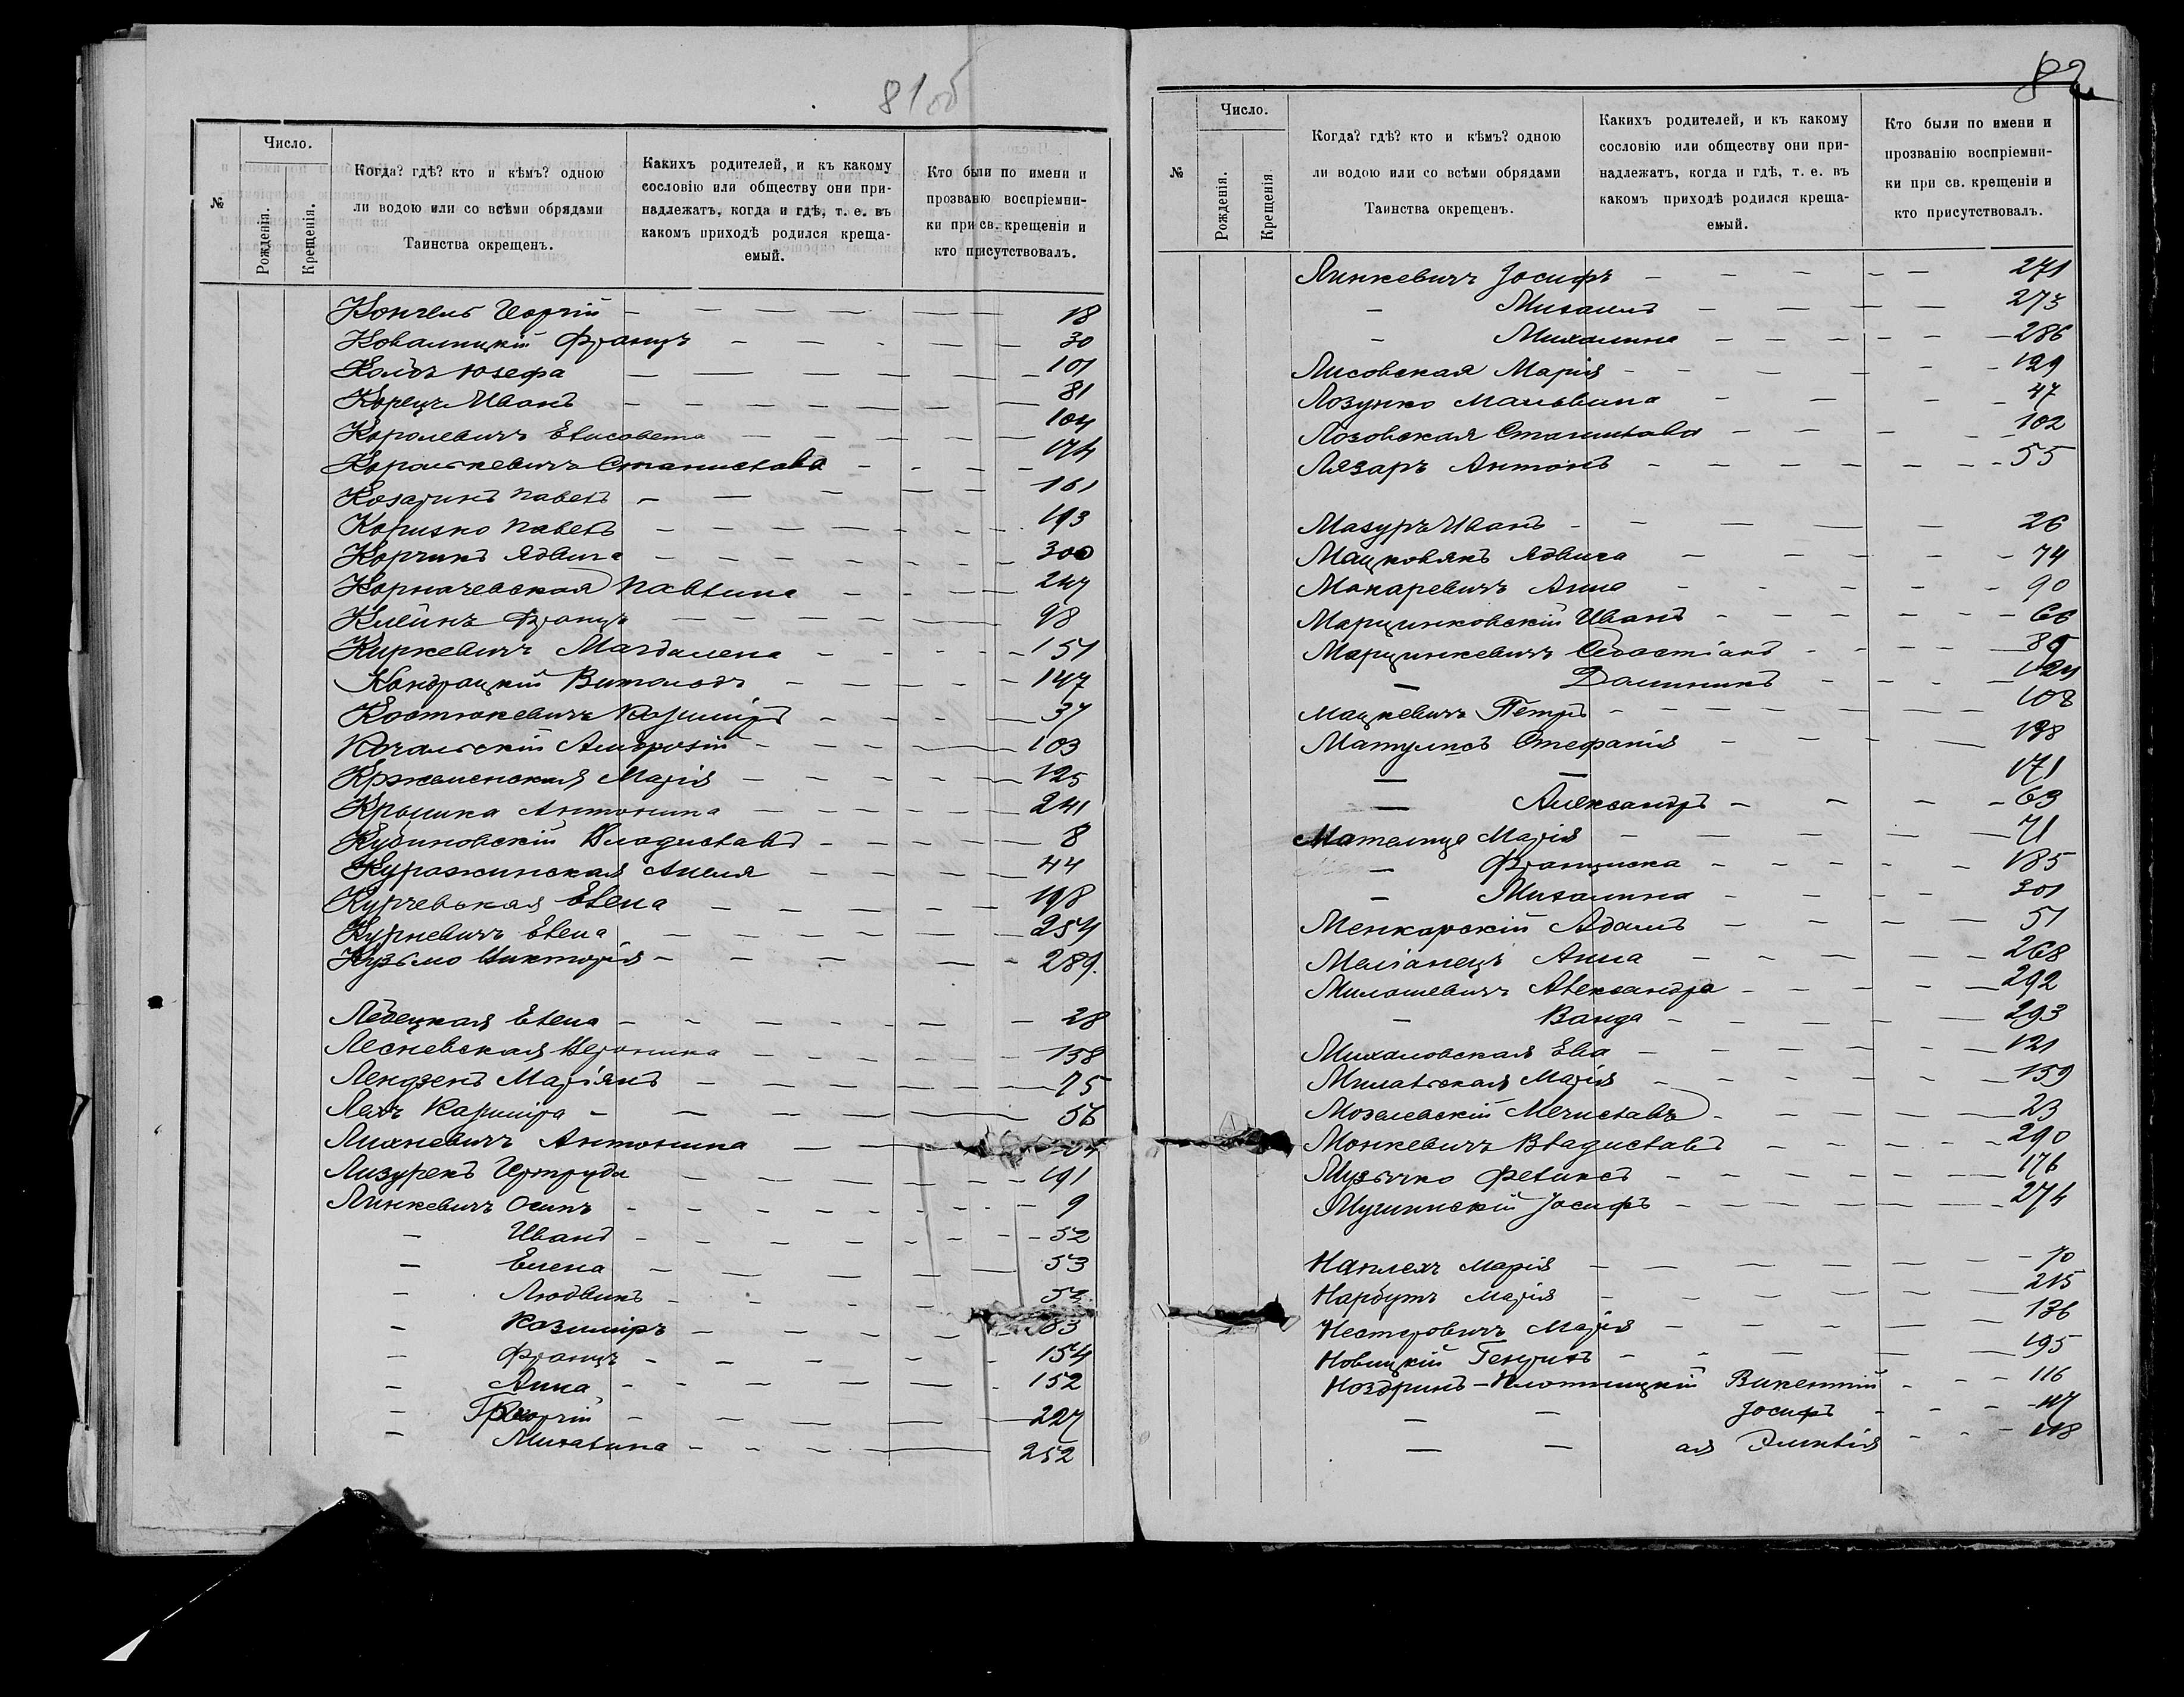 81об
№
Число.
Рожденія.
Крещенія.
Когда? гдѣ? кто и кѣмъ? одною
ли водою или со всѣми обрядами
Таинства окрещенъ.
Какихъ родителей, и къ какому
сословію или обществу они при-
надлежатъ, когда и гдѣ, т. е. въ
какомъ приходѣ родился креща-
емый.
Кто были по имени и
прозванію воспріемни-
ки при св. крещеніи и
кто присутствовалъ.
Кончель Георгій — 18
Ковалицкій Францъ — 30
Колбъ Юзефа — 101
Корецъ Иванъ — 81
Королевичъ Елисавета — 104
Королькевичъ Станиславъ — 174
Козаринъ Павелъ — 161
Коризко Павелъ — 193
Корчикъ Ядвига — 300
Корначевская Павлина — 247
Клейнъ Францъ — 98
Киркевичъ Магдалена — 151
Кондрацкій Витольдъ — 147
Костюкевичъ Казиміръ — 37
Качальскій Амброзій — 103
Кржеменская Марія — 125
Крошка Антонина — 241
Кубиновскій Владиславъ — 8
Куражинская Анеля — 44
Курчевская Елена — 198
Курневичъ Елена — 254
Кузьмо Викторія — 289.
Лебецкая Елена — 28
Лесневская Вероника — 138
Лендзенъ Маріянъ — 75
Лахъ Казиміра — 56
Лихневичъ Антонина —
Лизурекъ Гертруда — 191
Линкевичъ Осипъ — 9
— Иванъ — 52
— Елена — 53
— Людвикъ —
— Казиміръ — 83
— Францъ — 154
— Анна — 152
— Георгій — 227
— Михалина — 252
82
№
Число.
Рожденія.
Крещенія
Когда? гдѣ? кто и кѣмъ? одною
ли водою или со всѣми обрядами
Таинства окрещенъ.
Какихъ родителей, и къ какому
сословію или обществу они при-
надлежатъ, когда и гдѣ, т. е. въ
какомъ приходѣ родился креща-
емый.
Кто были по имени и
прозванію воспріемни-
ки при св. крещеніи и
кто присутствовалъ.
Линкевичъ Іосифъ — 271
— Михаилъ — 273
— Михалина — 286
Лисовская Марія — 129
Лозунко Мальвина — 47
Лозовская Станислава — 102
Лязаръ Антонъ — 55
Мазуръ Иванъ — 26
Мацковякъ Ядвига — 74
Макаревичъ Анна — 90
Марцинковскій Иванъ — 66
Марцинкевичъ Севастіанъ —
— Доминикъ — 124
Мацкевичъ Петръ — 108
Матулисъ Стефанія — 128
— — 171
— Александръ — 63
Мателица Марія — 71
— Франциска — 185
— Михалина — 301
Менкарскій Адамъ — 51
Меліанецъ Анна — 268
Милошевичъ Александра — 292
— Ванда — 293
Михаловская Ева — 121
Милавская Марія — 159
Мозалевскій Мечиславъ — 23
Монкевичъ Владиславъ — 290
Музычко Феликсъ — 176
Мушинскій Іосифъ — 274
Наплехъ Марія — 70
Нарбутъ Марія — 215
Нестеровичъ Марія — 136
Новицкій Генрихъ — 195
Ноздринъ-Плотницкій Викентій — 116
— — Іосифъ — 117
— — ая Эмилія — 118